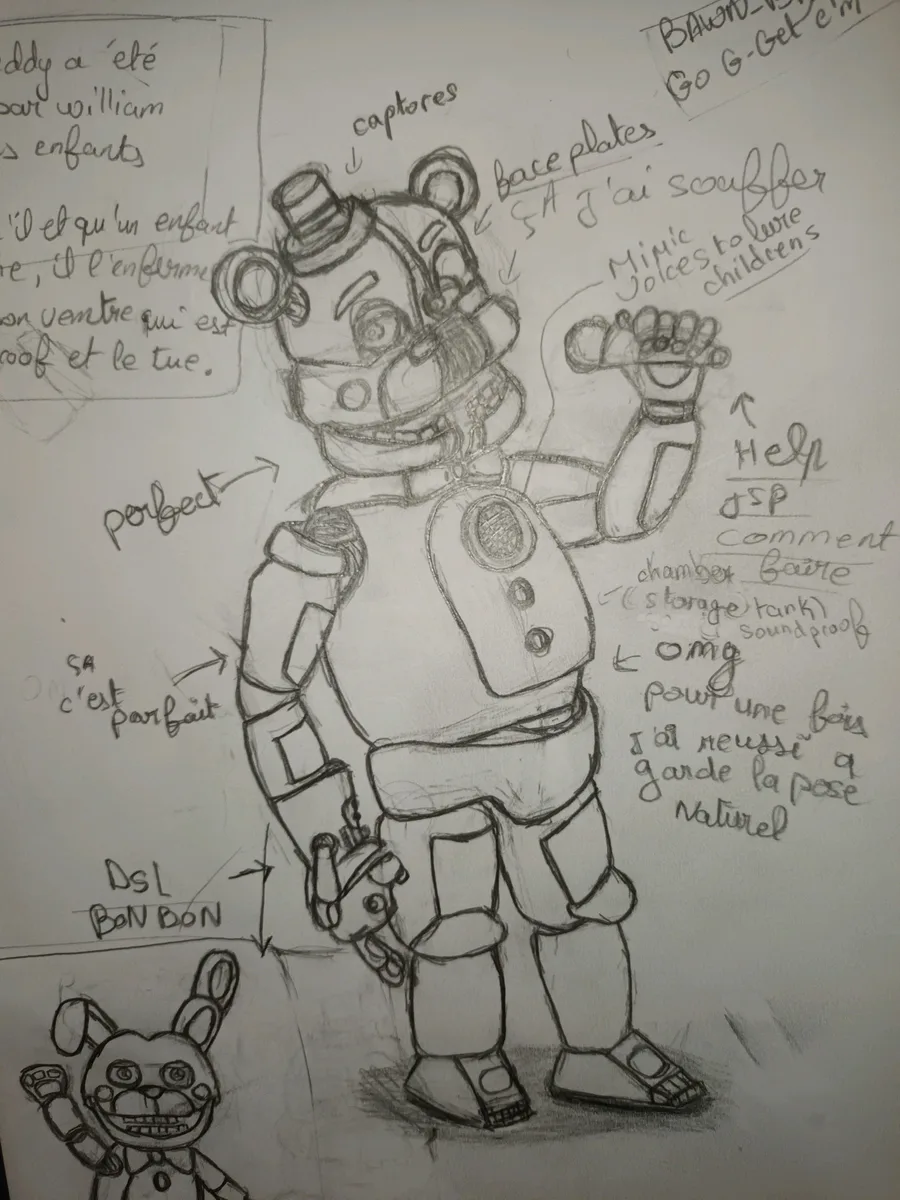 ddy a été
par william
s enfants
l'il et qu'un enfant
re, il l'enferme
on ventre qui est
roof et le tue.
Go G-Get e'm
captores
face plates
ÇA j'ai souffer
Mimic
voices to lure
childrens
perfect
Help
JSP
comment
faire
chamber
(storage tank)
soundproof
omg
pour une fois
j'ai reussi a
garde la pose
Naturel
ÇA
c'est
parfait
DSL
BON BON